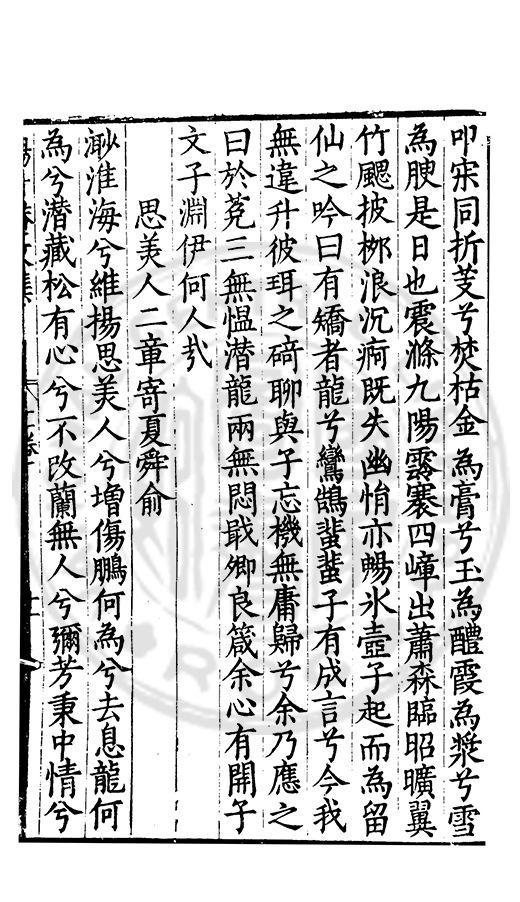 叩宋同折芰兮焚枯金為膏兮玉為醴霞為漿兮雪
為腴是日也震滌九陽霧褰四嶂出蕭森臨昭曠翼
竹颸披栁浪沉痾既失幽悁亦暢氷壺子起而為留
仙之吟曰有矯者龍兮鸞鵠蜚蜚子有成言兮今我
無違升彼珥之碕聊與子忘機無庸歸兮余乃應之
曰於莬三無愠潜龍兩無悶戢卿良箴余心有開子
文子淵伊何人㢤
思美人二章寄夏舜俞
渺淮海兮維揚思美人兮増傷鵬何為兮去息龍何
為兮潜藏松有心兮不改蘭無人兮彌芳秉中情兮